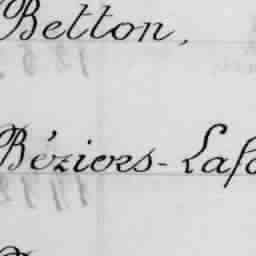 Betton,
Béziers-Lafo